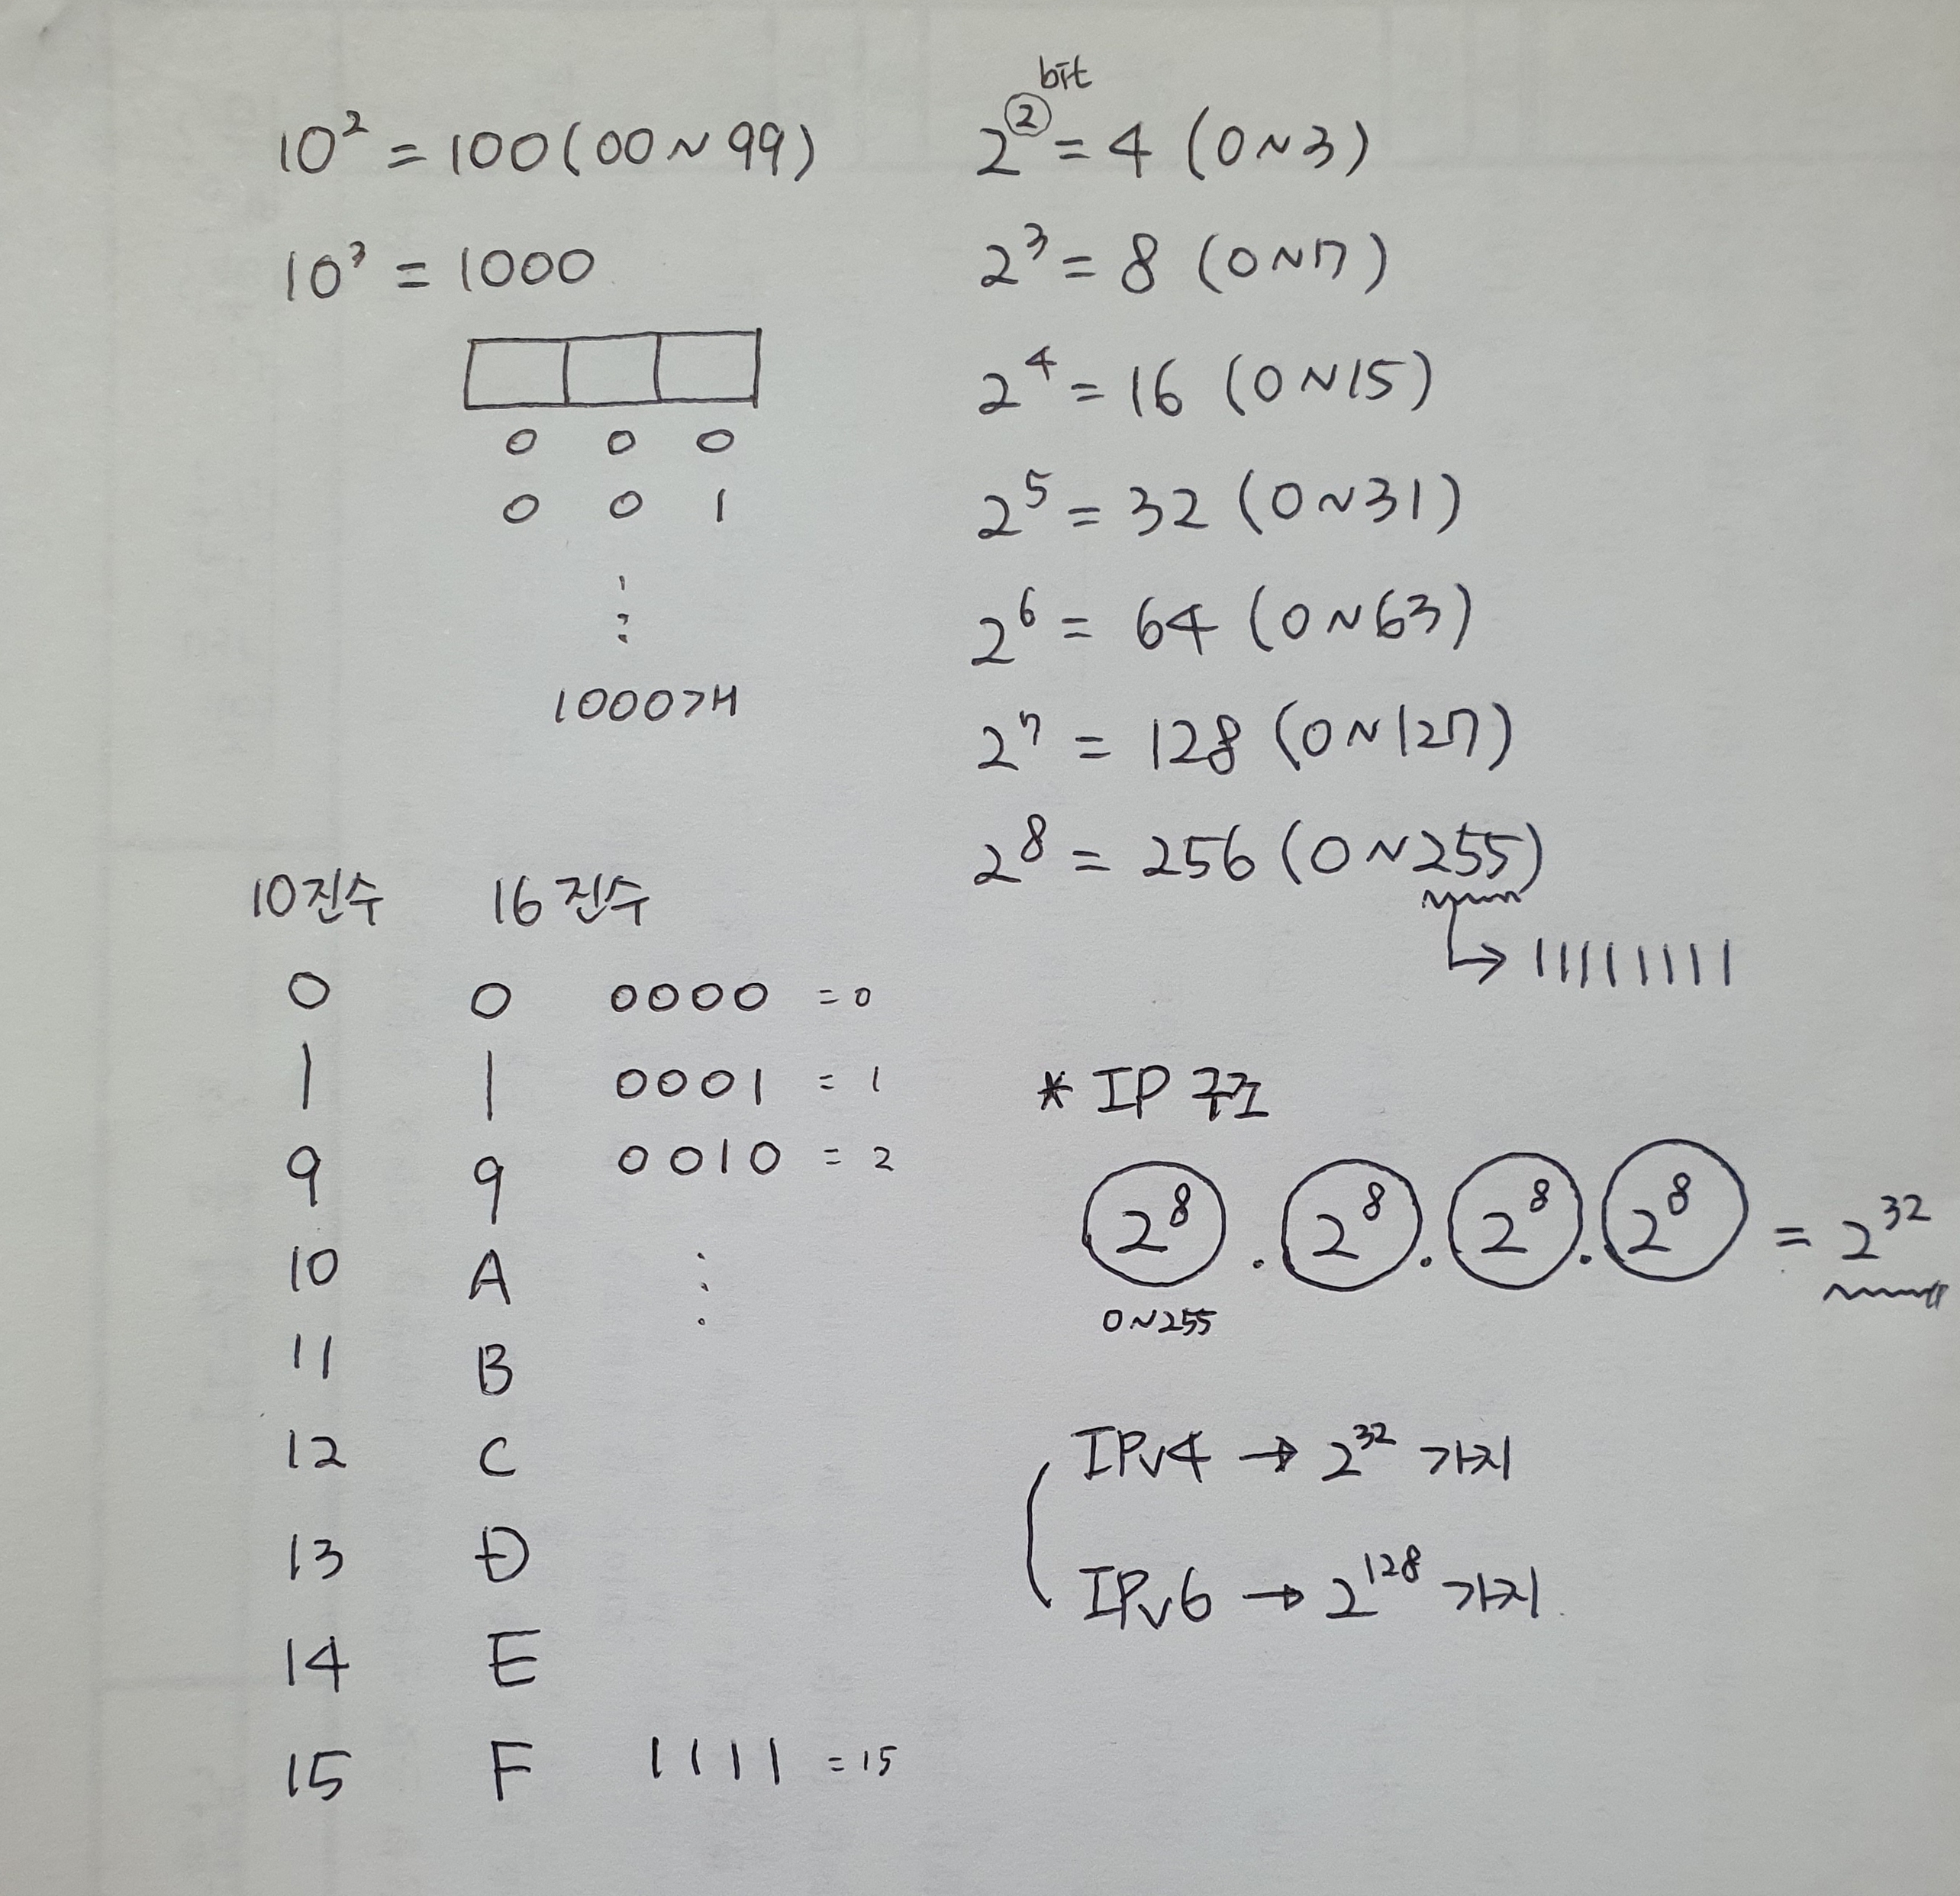 10² = 100 (00 ~ 99)
10³ = 1000
0 0 0
0 0 1
⋮
1000개
bit
2² = 4 (0 ~ 3)
2³ = 8 (0 ~ 7)
2⁴ = 16 (0 ~ 15)
2⁵ = 32 (0 ~ 31)
2⁶ = 64 (0 ~ 63)
2⁷ = 128 (0 ~ 127)
2⁸ = 256 (0 ~ 255)
→ 11111111
10진수 16진수
0 0 0000 = 0
1 1 0001 = 1
9 9 0010 = 2
10 A ⋮
11 B
12 C
13 D
14 E
15 F 1111 = 15
* IP 구조
2⁸ . 2⁸ . 2⁸ . 2⁸ = 2³²
0 ~ 255
IPv4 → 2³² 가지
IPv6 → 2¹²⁸ 가지.